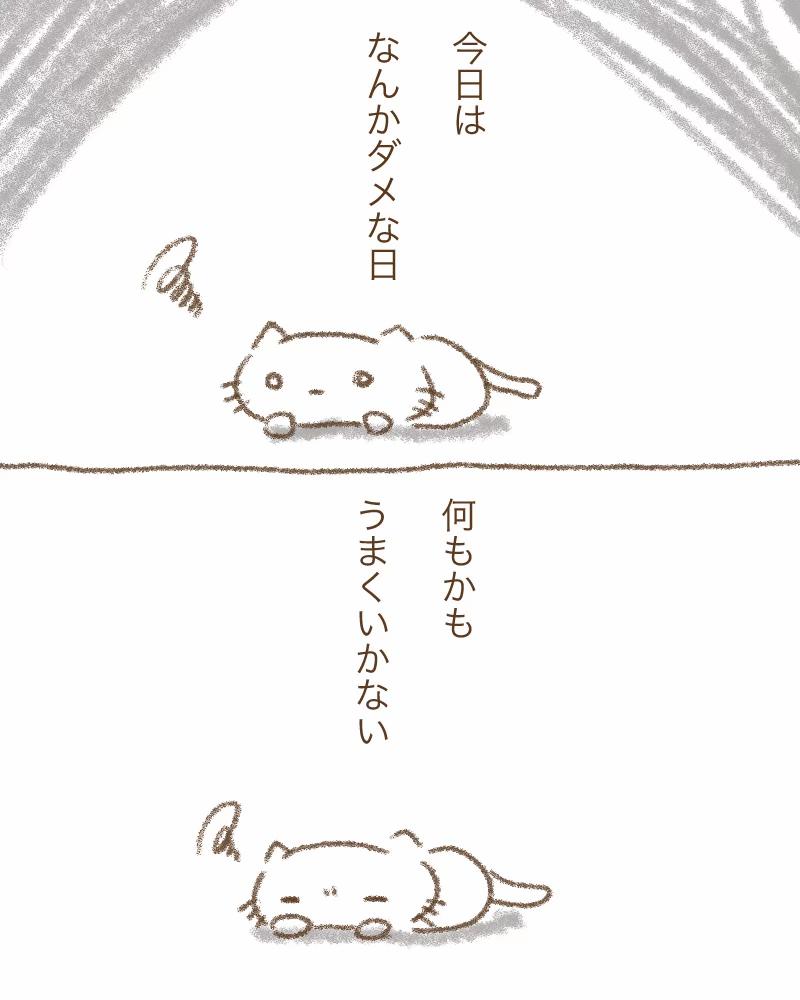 今日は
なんかダメな日
何もかも
うまくいかない